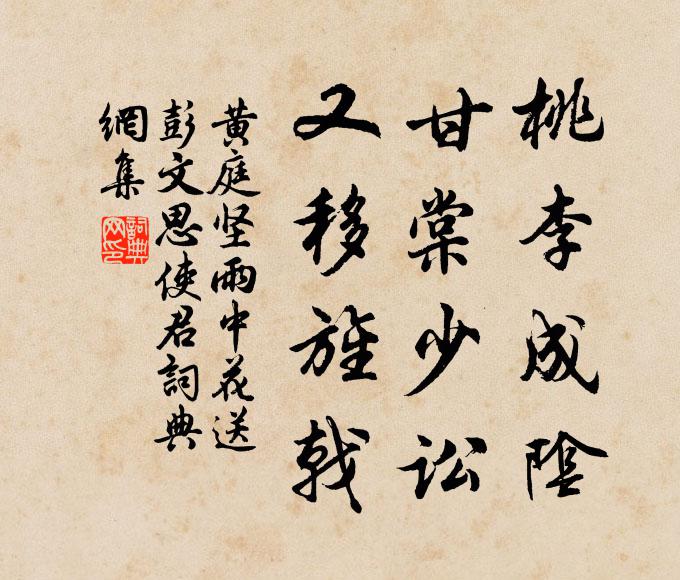 桃李成陰
甘棠少讼
又移旌戟
黄庭坚雨中花送
彭文思使君詞典
網集
詞典
网印